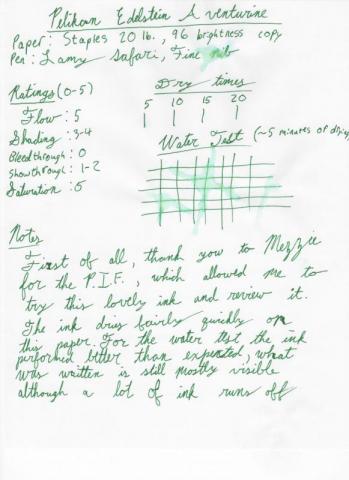 Pelikan Edelstein Aventurine
Paper: Staples 20 lb., 96 brightness copy
Pen: Lamy Safari, Fine nib
Ratings (0-5)
Flow: 5
Shading: 3-4
Bleedthrough: 0
Showthrough: 1-2
Saturation: 5
Dry times
5 10 15 20
Water Test (~5 minutes of drying)
Notes
First of all, thank you to Mezzie
for the P.I.F., which allowed me to
try this lovely ink and review it.
The ink dries fairly quickly on
this paper. For the water test, the ink
performed better than expected, what
was written is still mostly visible
although a lot of ink runs off